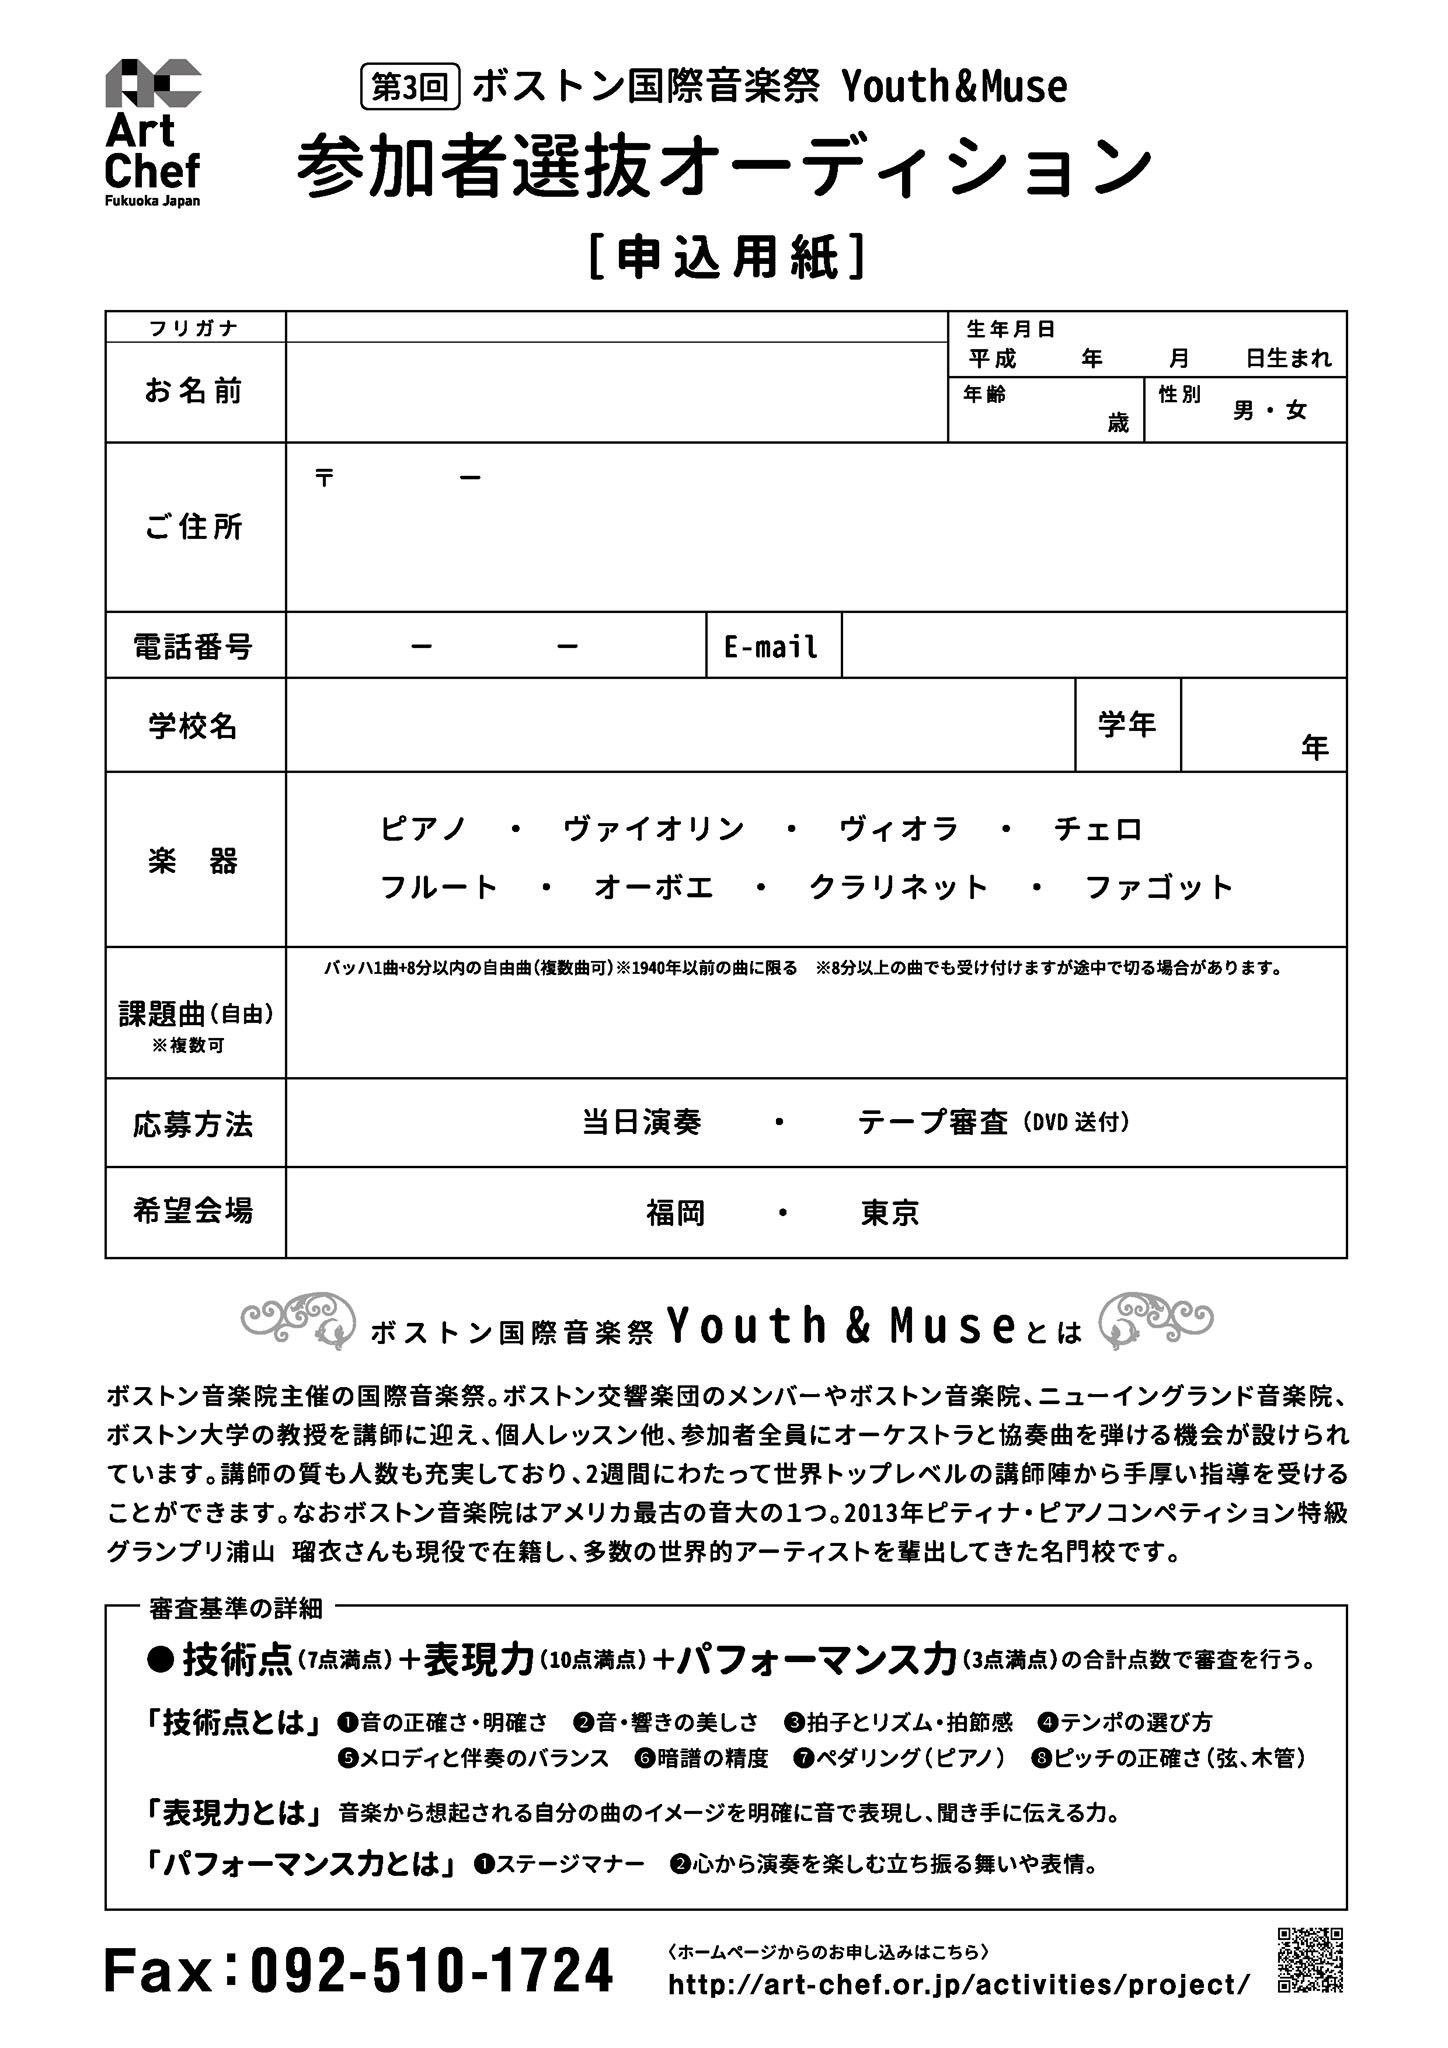 Art
Chef
Fukuoka Japan
第3回 ボストン国際音楽祭 Youth&Muse
参加者選抜オーディション
[申込用紙]
フリガナ
お名前
生年月日
平成 年 月 日生まれ
年齢 歳
性別 男・女
ご住所
〒 ー
電話番号 ー ー E-mail
学校名 学年 年
楽 器
ピアノ ・ ヴァイオリン ・ ヴィオラ ・ チェロ
フルート ・ オーボエ ・ クラリネット ・ ファゴット
課題曲(自由)
※複数可
バッハ1曲+8分以内の自由曲(複数曲可)※1940年以前の曲に限る ※8分以上の曲でも受け付けますが途中で切る場合があります。
応募方法 当日演奏 ・ テープ審査(DVD 送付)
希望会場 福岡 ・ 東京
ボストン国際音楽祭 Youth & Museとは
ボストン音楽院主催の国際音楽祭。ボストン交響楽団のメンバーやボストン音楽院、ニューイングランド音楽院、
ボストン大学の教授を講師に迎え、個人レッスン他、参加者全員にオーケストラと協奏曲を弾ける機会が設けられ
ています。講師の質も人数も充実しており、2週間にわたって世界トップレベルの講師陣から手厚い指導を受ける
ことができます。なおボストン音楽院はアメリカ最古の音大の1つ。2013年ピティナ・ピアノコンペティション特級
グランプリ浦山 瑠衣さんも現役で在籍し、多数の世界的アーティストを輩出してきた名門校です。
審査基準の詳細
●技術点(7点満点)+表現力(10点満点)+パフォーマンス力(3点満点)の合計点数で審査を行う。
「技術点とは」❶音の正確さ・明確さ ❷音・響きの美しさ ❸拍子とリズム・拍節感 ❹テンポの選び方
❺メロディと伴奏のバランス ❻暗譜の精度 ❼ペダリング(ピアノ) ❽ピッチの正確さ(弦、木管)
「表現力とは」音楽から想起される自分の曲のイメージを明確に音で表現し、聞き手に伝える力。
「パフォーマンス力とは」❶ステージマナー ❷心から演奏を楽しむ立ち振る舞いや表情。
Fax:092-510-1724
〈ホームページからのお申し込みはこちら〉
http://art-chef.or.jp/activities/project/